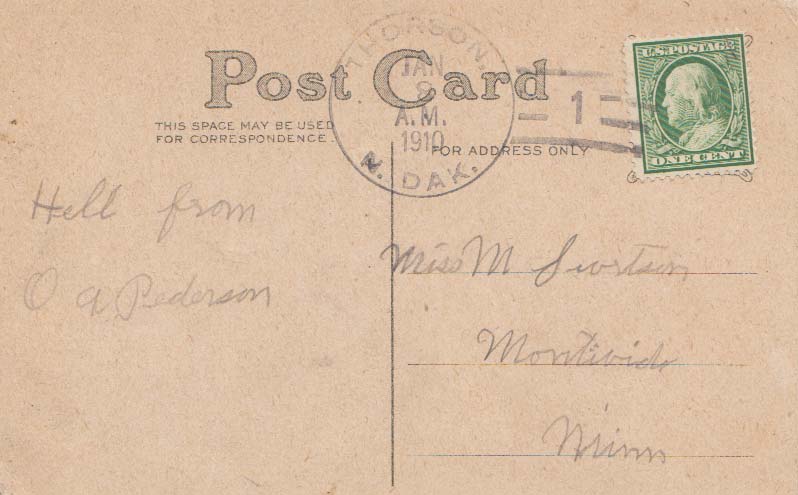 Post Card
THIS SPACE MAY BE USED
FOR CORRESPONDENCE.
FOR ADDRESS ONLY
THORSON,
JAN
8
A.M.
1910
N. DAK.
1
U.S. POSTAGE
ONE CENT
Hell from
O a Pederson
Miss M Sivertson
Montivido
Minn